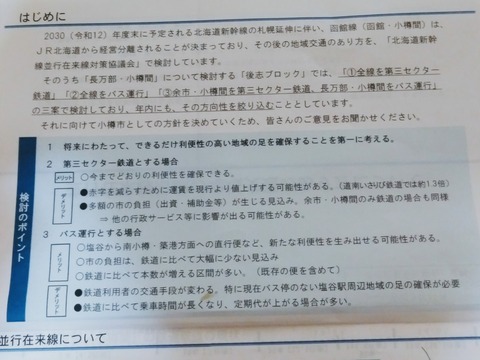 はじめに
2030（令和12）年度末に予定される北海道新幹線の札幌延伸に伴い、函館線（函館・小樽間）は、
ＪＲ北海道から経営分離されることが決まっており、その後の地域交通のあり方を、「北海道新幹
線並行在来線対策協議会」で検討しています。
そのうち「長万部・小樽間」について検討する「後志ブロック」では、「①全線を第三セクター
鉄道」「②全線をバス運行」「③余市・小樽間を第三セクター鉄道、長万部・小樽間をバス運行」
の三案で検討しており、年内にも、その方向性を絞り込むこととしています。
それに向けて小樽市としての方針を決めていくため、皆さんのご意見をお聞かせください。
検討のポイント
1 将来にわたって、できるだけ利便性の高い地域の足を確保することを第一に考える。
2 第三セクター鉄道とする場合
メリット
○今までどおりの利便性を確保できる。
デメリット
●赤字を減らすために運賃を現行より値上げする可能性がある。（道南いさりび鉄道では約1.3倍）
●多額の市の負担（出資・補助金等）が生じる見込み、余市・小樽間のみ鉄道の場合も同様
⇒ 他の行政サービス等に影響が出る可能性がある。
3 バス運行とする場合
メリット
○塩谷から南小樽・築港方面への直行便など、新たな利便性を生み出せる可能性がある。
○市の負担は、鉄道に比べて大幅に少ない見込み
○鉄道に比べて本数が増える区間が多い。（既存の便を含めて）
デメリット
●鉄道利用者の交通手段が変わる。特に現在バス停のない塩谷駅周辺地域の足の確保が必要
●鉄道に比べて乗車時間が長くなり、定期代が上がる場合が多い。
並行在来線について